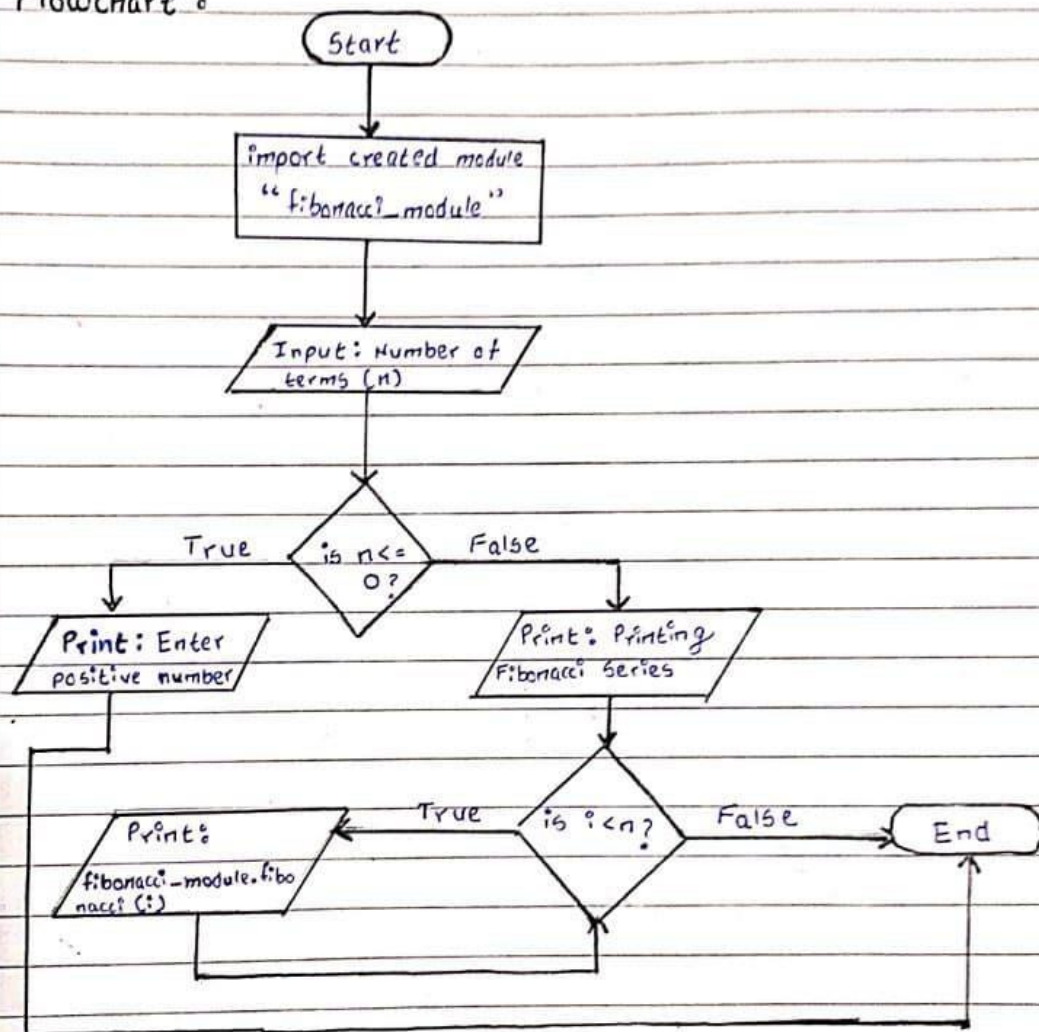 Flowchart :
Start
import created module
"fibonacci_module"
Input: Number of
terms (n)
is n<=
0?
True
False
Print: Enter
positive number
Print: Printing
Fibonacci Series
is i<n?
True
False
Print:
fibonacci_module.fibo
nacci (i)
End